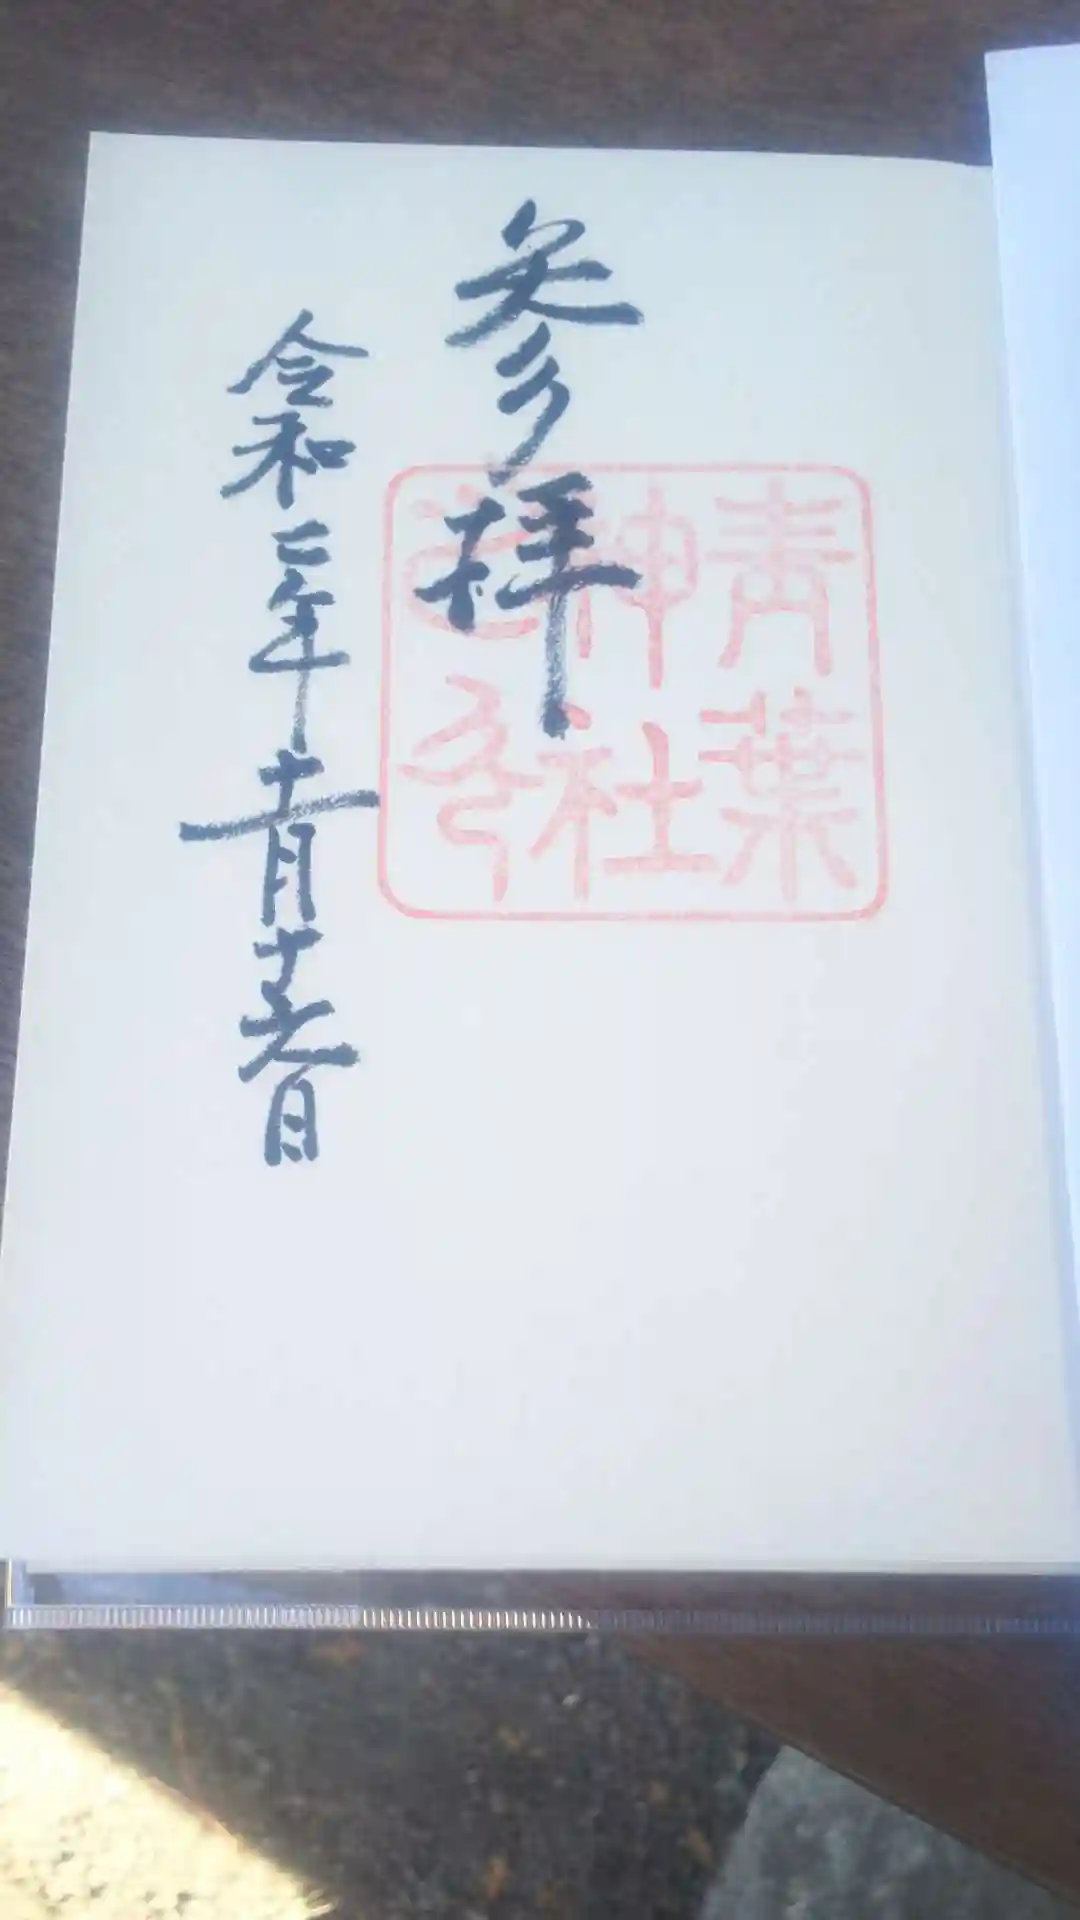 参拝
青葉
神社
之印
令和二年十一月十六日